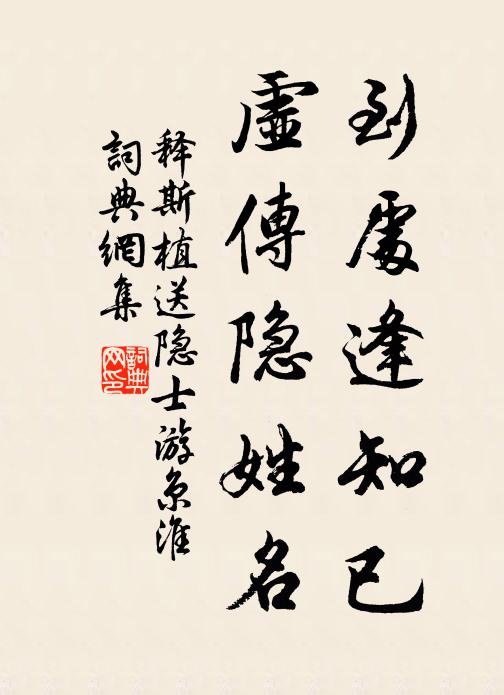 到處逢知己
虛傳隐姓名
释斯植送隐士游京淮
詞典網集
詞典网印